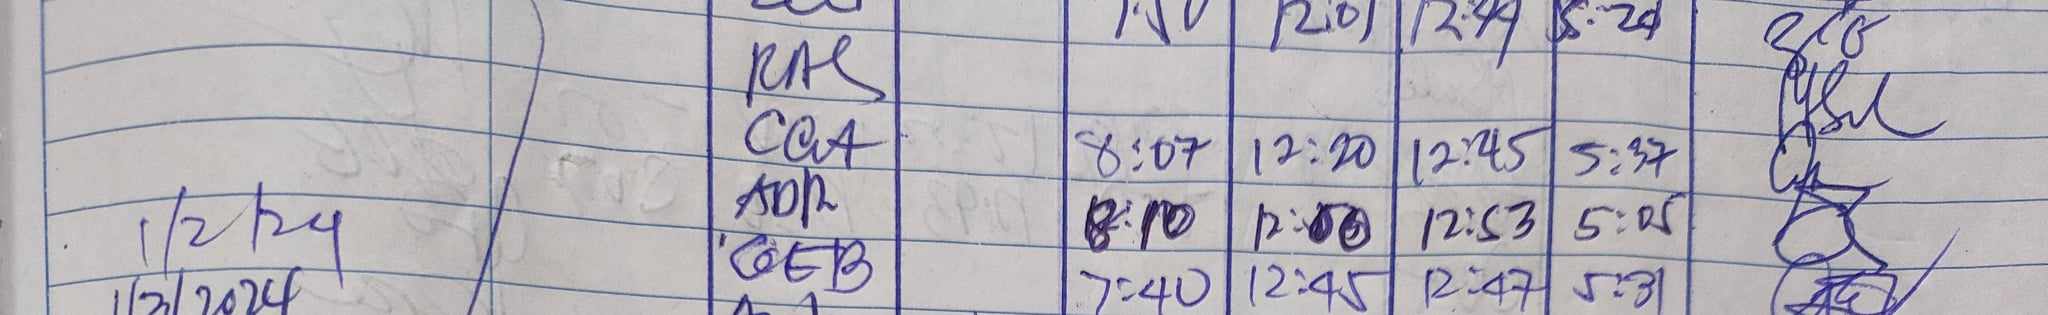 12:01 12:49 5:29
RAC
CGA 8:07 12:20 12:45 5:37
ADR 8:10 12:00 12:53 5:05
1/2/24 GEB 7:40 12:45 12:47 5:31
1/3/2024